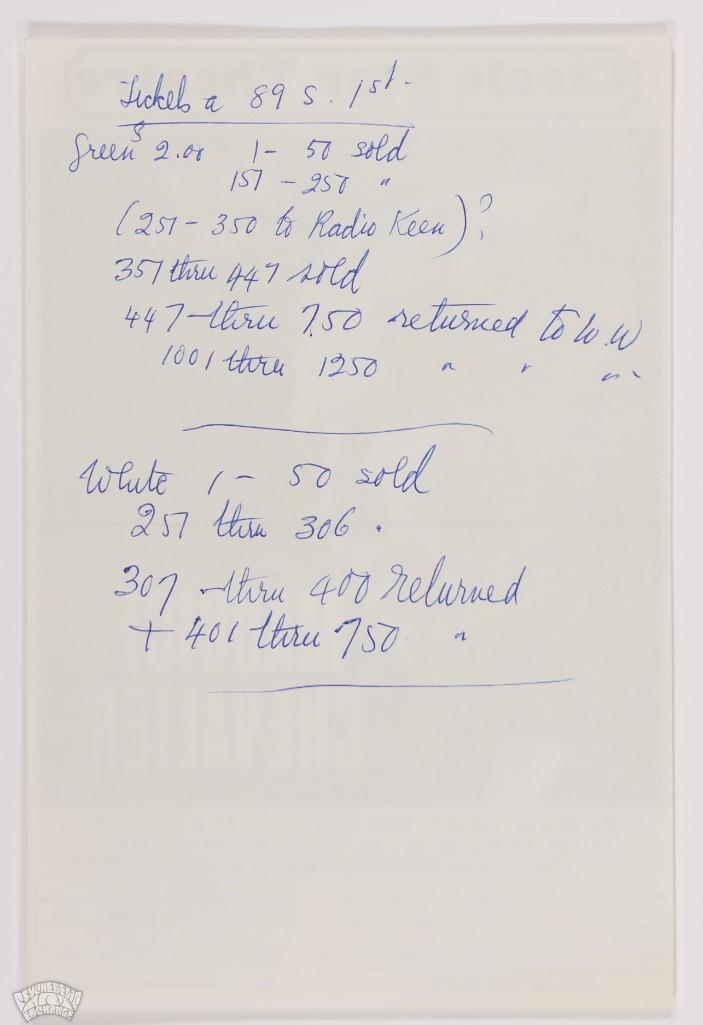 Tickets a 89 S. 1st.
Green $ 2.00 1 - 50 sold
151 - 250 "
(251 - 350 to Radio Keen)?
351 thru 447 sold
447 thru 750 returned to W.W
1001 thru 1250 " " "
White 1 - 50 sold
251 thru 306 "
307 thru 400 returned
+ 401 thru 750 "
CHEVALIER